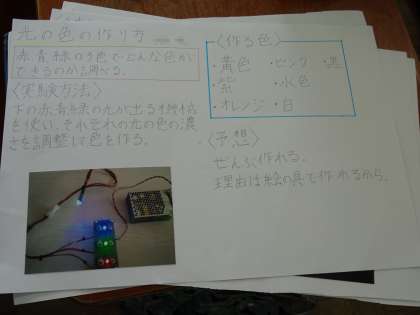 光の色の作り方
赤青緑の3色でどんな色が
できるのか調べる。
〈実験方法〉
下の赤青緑の光が出る機械
を使い、それぞれの光の色の濃
さを調整して色を作る。
〈作る色〉
・黄色 ・ピンク ・黒
・紫 ・水色
・オレンジ ・白
〈予想〉
ぜんぶ作れる。
理由は絵の具で作れるから。